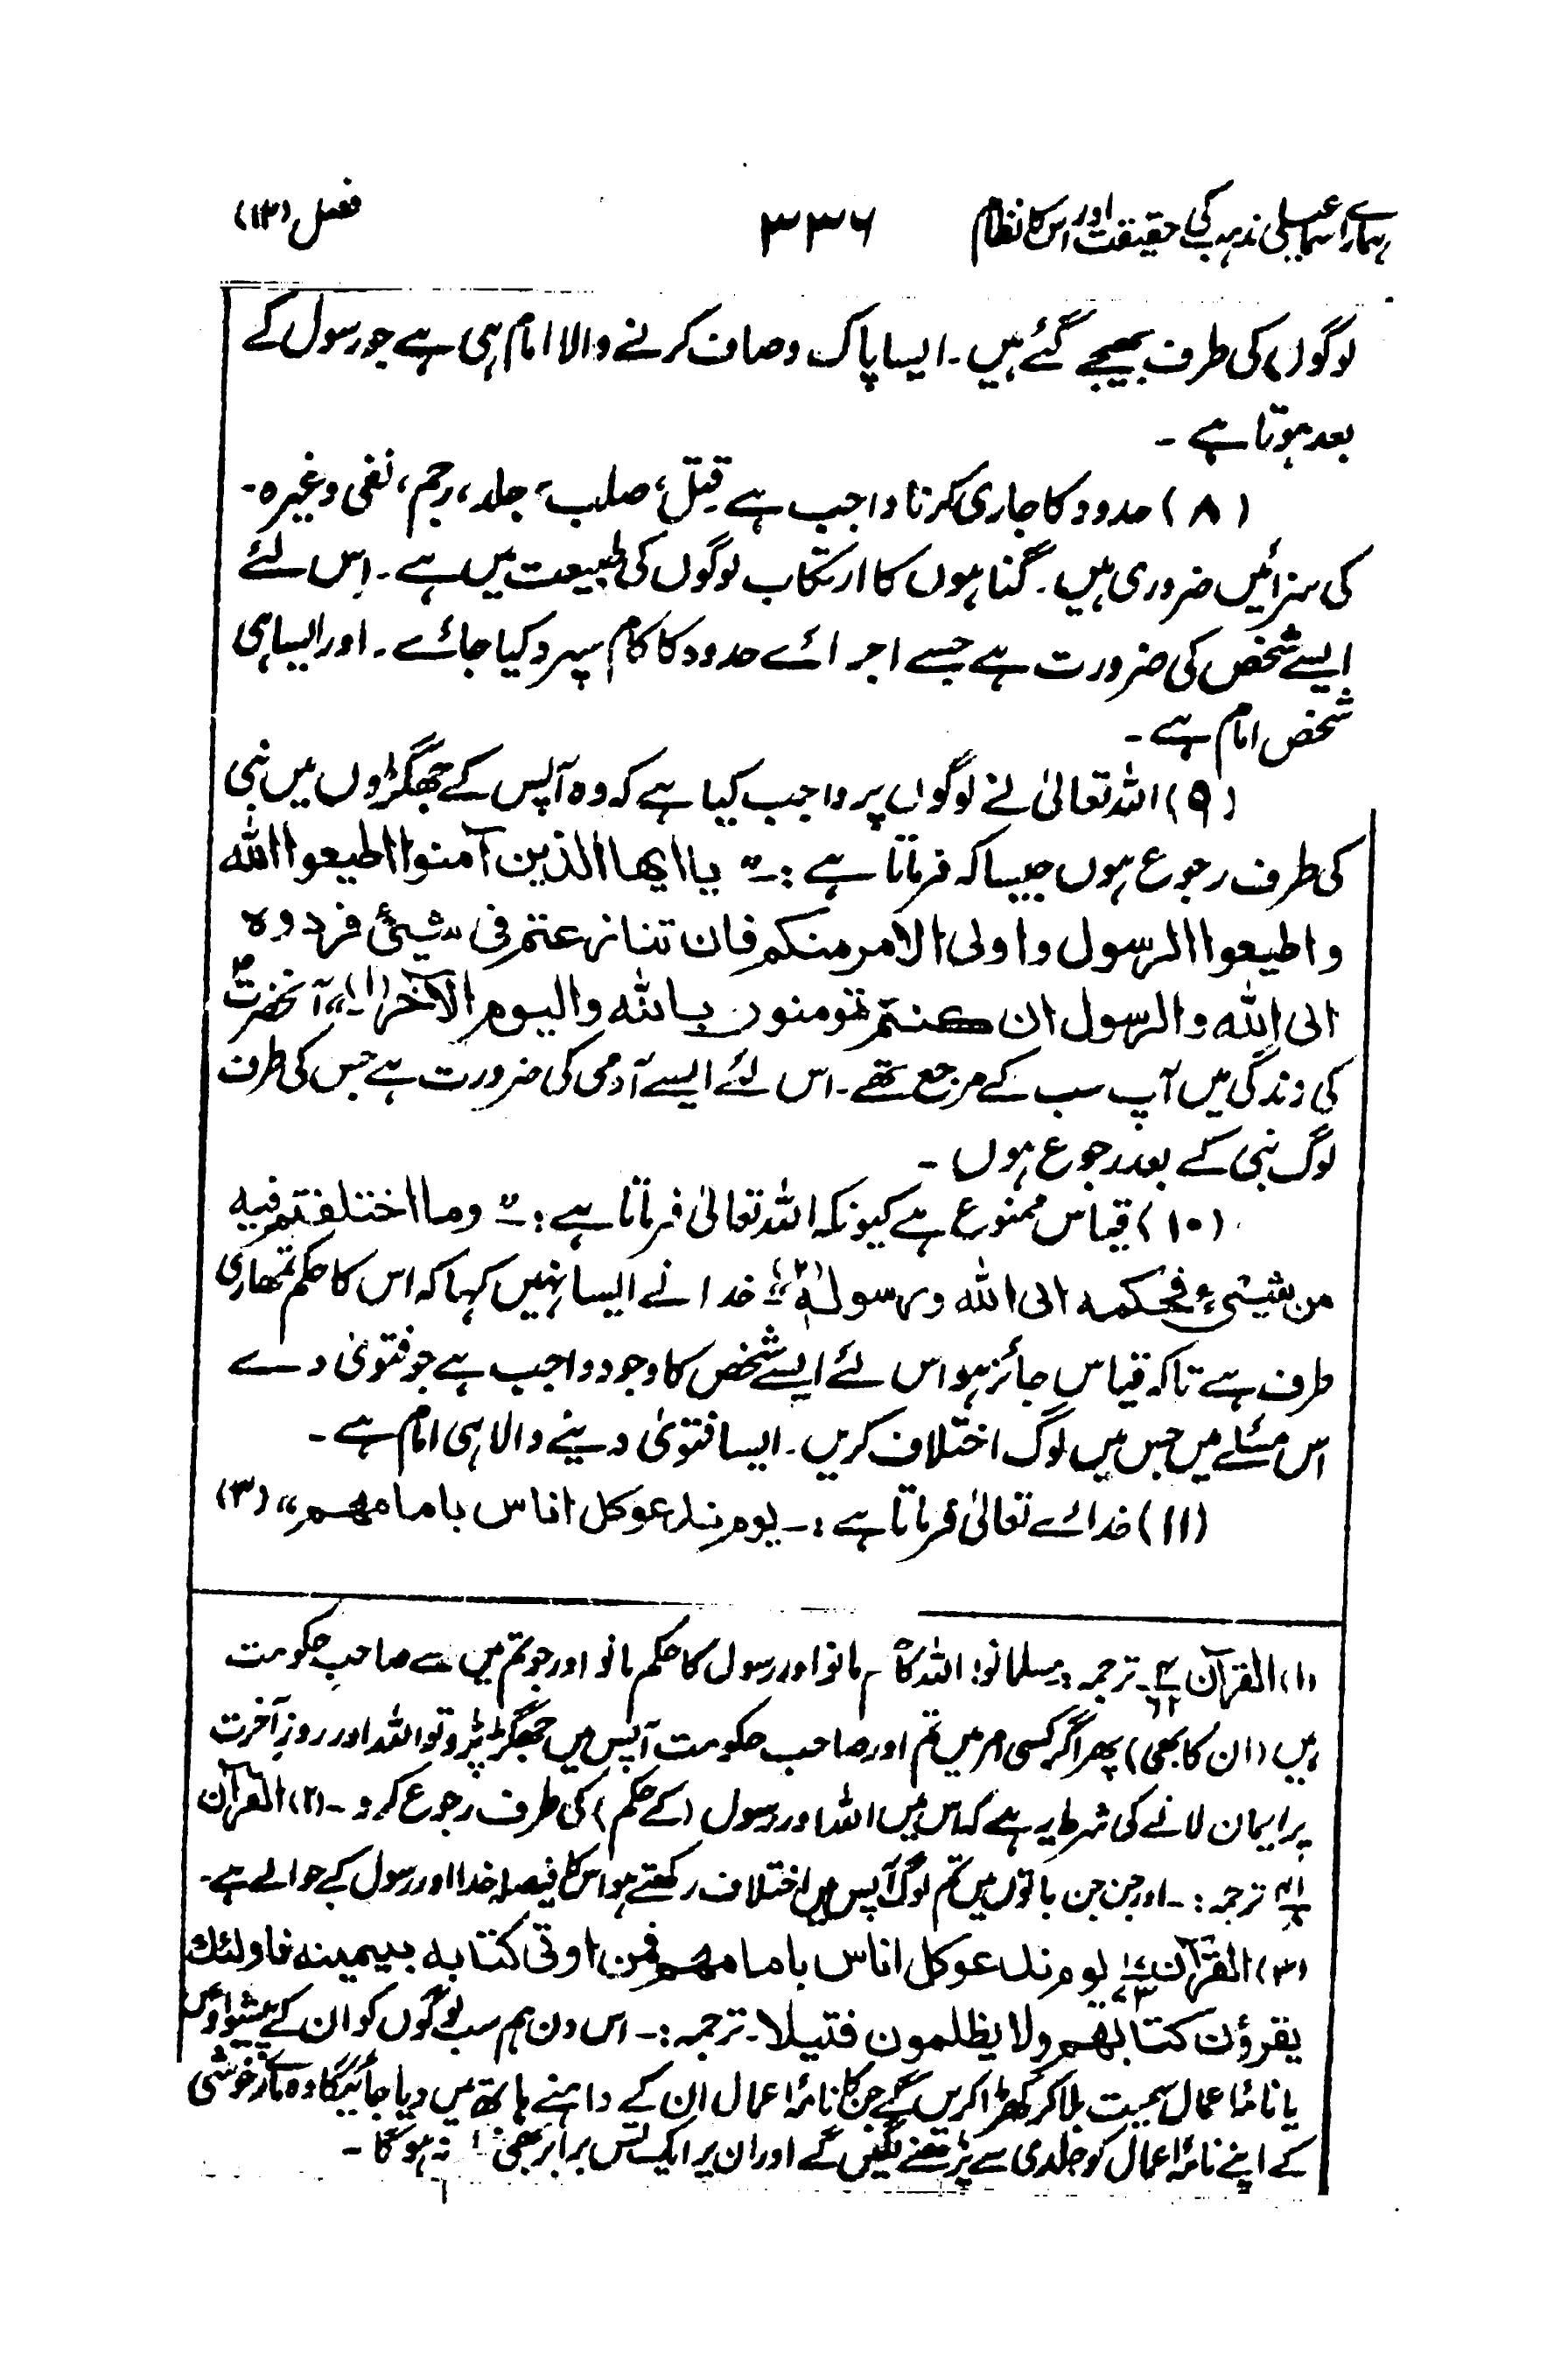 ہمارے اسماعیلی مذہب کی حقیقت اور اس کا نظام ۳۳۶ فصل (۱۳)
لوگوں کی طرف بھیجے گئے ہیں۔ ایسا پاک و صاف کرنے والا امام ہی ہے جو رسول کے
بعد ہوتا ہے ۔
(۸) حدود کا جاری کرنا واجب ہے قتل، صلب، جلد، رجم، نفی وغیرہ۔
کی سزائیں ضروری ہیں۔ گناہوں کا ارتکاب لوگوں کی طبیعت میں ہے۔ اِس لئے
ایسے شخص کی ضرورت ہے جسے اجرائے حدود کا کام سپرد کیا جائے۔ اور ایسا ہی
شخص امام ہے ۔
(۹) اللہ تعالیٰ نے لوگوں پر واجب کیا ہے کہ وہ آپس کے جھگڑوں میں نبی
کی طرف رجوع ہوں جیسا کہ فرماتا ہے :۔ "یا ایھا الذین آمنوا اطیعوا اللہ
واطیعوا الرسول واولی الامر منکم فان تنازعتم فی شیئ فردوہ
الی اللہ والرسول ان کنتم تومنون باللہ والیوم الآخر (۱)" آنحضرتؐ
کی زندگی میں آپ سب کے مرجع تھے۔ اس لئے ایسے آدمی کی ضرورت ہے جس کی طرف
لوگ نبی کے بعد رجوع ہوں ۔
(۱۰) قیاس ممنوع ہے کیونکہ اللہ تعالیٰ فرماتا ہے :۔ "وما اختلفتم فیہ
من شیئ فحکمہ الی اللہ ورسولہ (۲)" خدا نے ایسا نہیں کہا کہ اس کا حکم تمھاری
طرف ہے تاکہ قیاس جائز ہو اس لئے ایسے شخص کا وجود واجب ہے جو فتویٰ دے
اس مسئلے میں جس میں لوگ اختلاف کریں۔ ایسا فتویٰ دینے والا ہی امام ہے ۔
(۱۱) خدائے تعالیٰ فرماتا ہے :۔ یوم ندعو کل اناس بامامھم" (۳)
(۱) القرآن ۴/۶۲ ۔ ترجمہ : مسلمانو! اللہ کا مانو اور رسول کا حکم مانو اور جو تم میں سے صاحبِ حکومت
ہیں (ان کا بھی) پھر اگر کسی امر میں تم اور صاحب حکومت آپس میں جھگڑ پڑو تو اللہ اور روزِ آخرت
پر ایمان لانے کی شرط یہ ہے کہ اس میں اللہ اور رسول (کے حکم) کی طرف رجوع کرو ۔ (۲) القرآن
ترجمہ :۔ اور جن جن باتوں میں تم لوگ آپس میں اختلاف رکھتے ہو اس کا فیصلہ خدا اور رسول کے حوالے ہے۔
(۳) القرآن ۱۷/۷۳ یوم ندعو کل اناس بامامھم فمن اوتی کتابہ بیمینہ فاولئک
یقرؤن کتابھم ولا یظلمون فتیلا۔ ترجمہ :۔ اس دن ہم سب لوگوں کو ان کے پیشواؤں
یا نامۂ اعمال سمیت بلا کر کھڑا کریں گے جن کا نامۂ اعمال ان کے داہنے ہاتھ میں دیا جائیگا وہ مارے خوشی
کے اپنے نامۂ اعمال کو جلدی سے پڑھنے لگیں گے اور ان پر ایک برابر بھی نہ ہوگا ۔